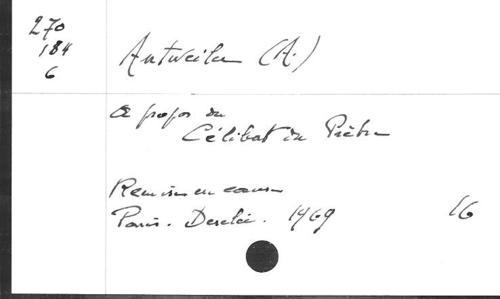 270
184
6
Antweiler (A.)
A propos du
Célibat du Prêtre
Remise en cause
Paris. Desclée. 1969 16